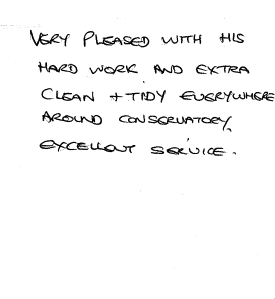 VERY PLEASED WITH HIS
HARD WORK AND EXTRA
CLEAN + TIDY EVERYWHERE
AROUND CONSERVATORY,
EXCELLENT SERVICE.